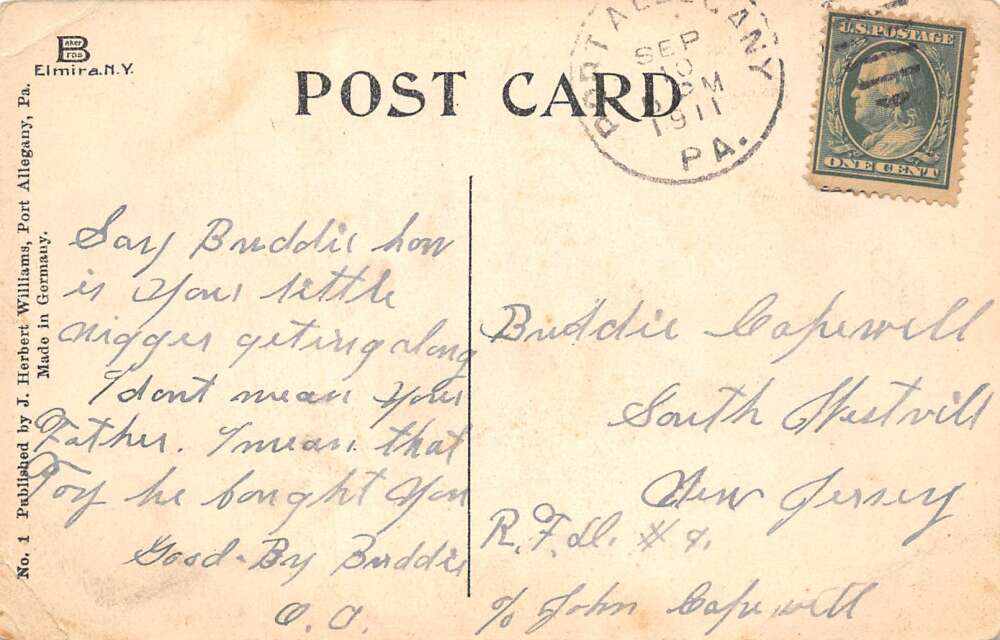 Baker
Bros
Elmira.N.Y.
POST CARD
PORT ALLEGANY
SEP
10
PM
1911
PA.
U.S. POSTAGE
ONE CENT
No. 1 Published by J. Herbert Williams, Port Allegany, Pa.
Made in Germany.
Say Buddie how
is your little
nigger geting along
I dont mean your
Father. I mean that
Toy he bought you
Good-By Buddie
Buddie Capewell
South Westvill
New Jersey
R.F.D. #
c/o John Capewell